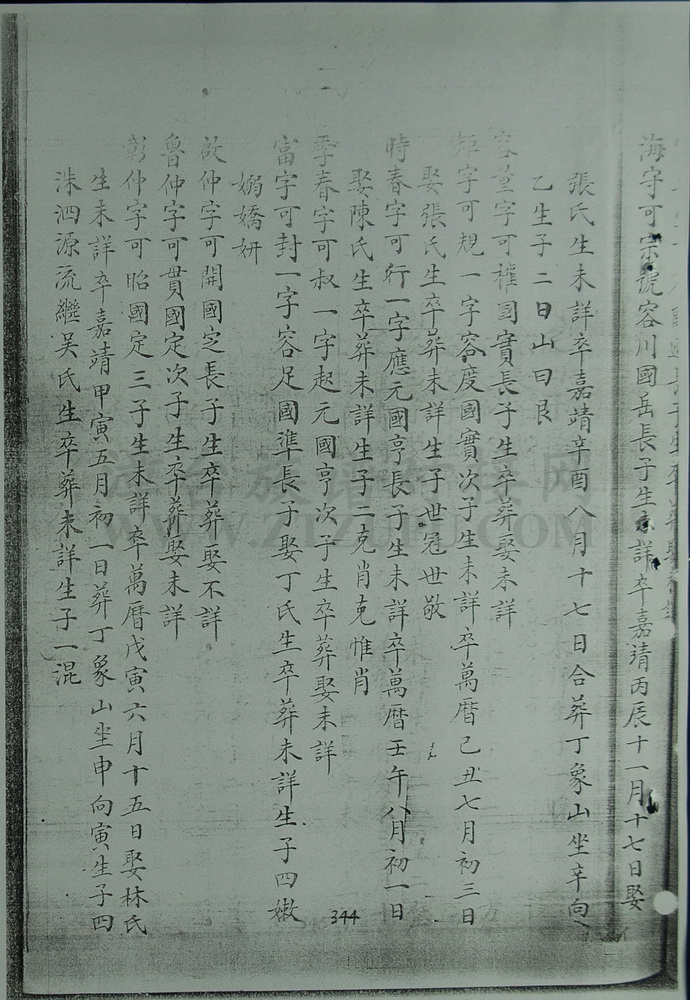 海字可宗號容川國岳長子生未詳卒嘉靖丙辰十一月十七日娶
張氏生未詳卒嘉靖辛酉八月十七日合葬丁象山坐辛向
乙生子二曰山曰艮
容重字可權國實長子生卒葬娶未詳
矩字可規一字容度國實次子生未詳卒萬曆己丑七月初三日
娶張氏生卒葬未詳生子世冠世敬
時春字可行一字應元國亨長子生未詳卒萬曆壬午八月初一日
娶陳氏生卒葬未詳生子二克肖克惟肖
季春字可叔一字起元國亨次子生卒葬娶未詳
富字可封一字容足國準長子娶丁氏生卒葬未詳生子四嫩
嫋嬌妍
啟仲字可開國定長子生卒葬娶不詳
魯仲字可貫國定次子生卒葬娶未詳
彰仲字可昭國定三子生未詳卒萬曆戊寅六月十五日娶林氏
生未詳卒嘉靖甲寅五月初一日葬丁象山坐申向寅生子四
洙泗源流繼吳氏生卒葬未詳生子一混
344
WWW.ZTZUPU.COM